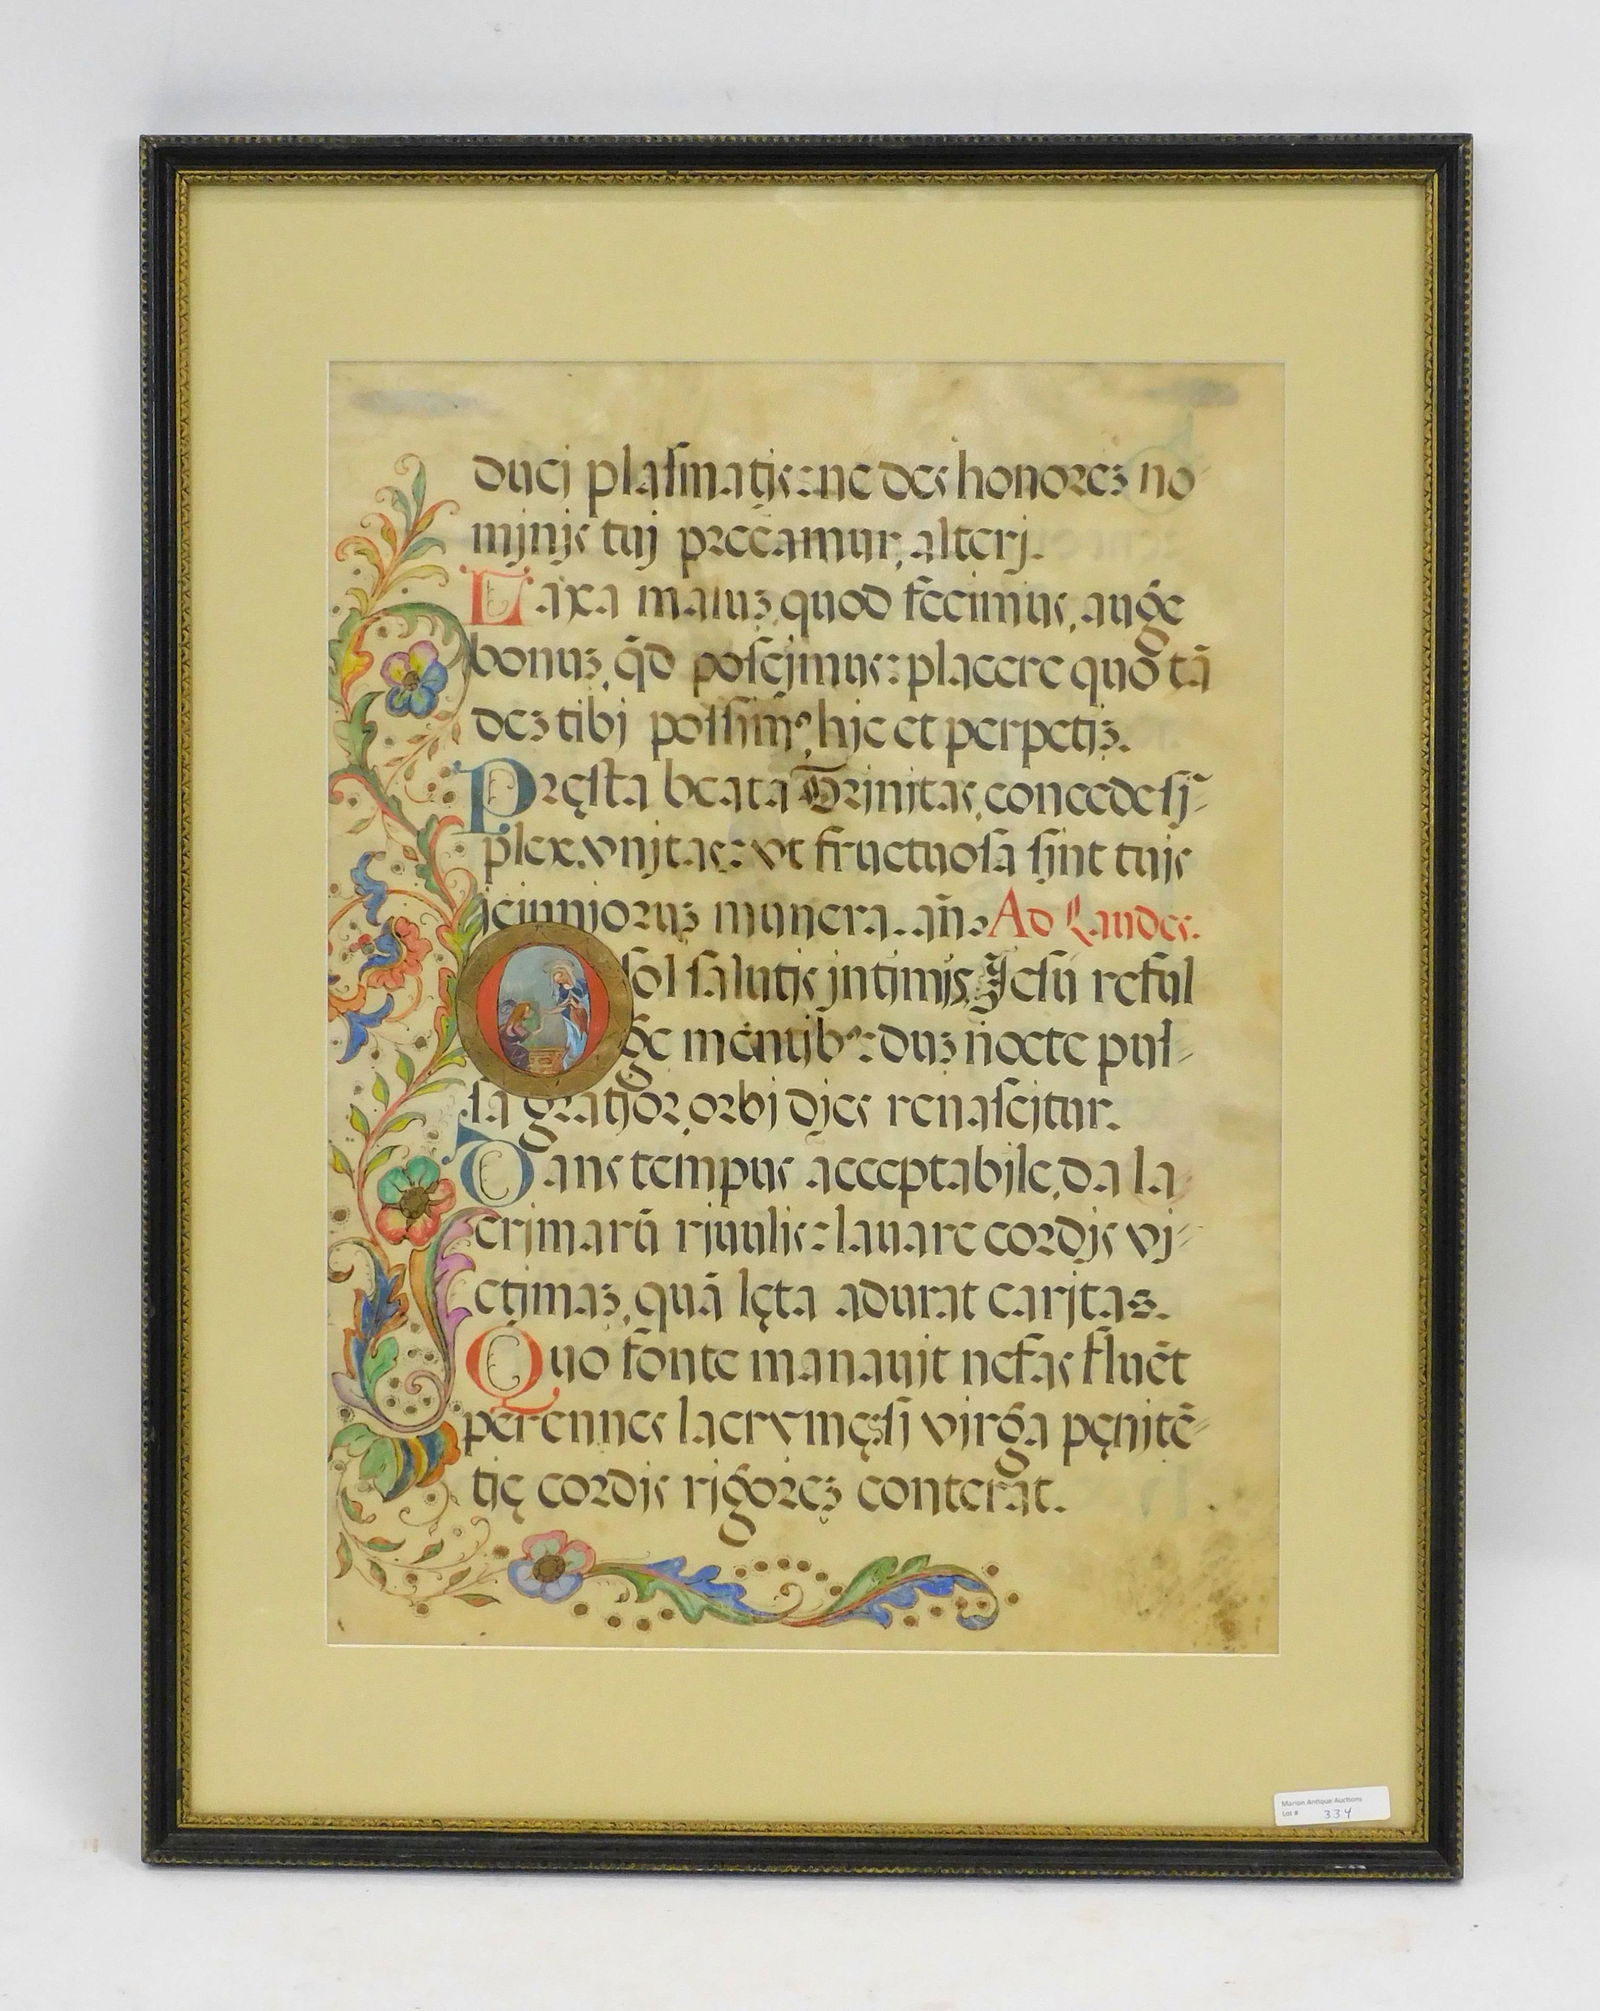 duci plasmatis: ne des honorez no-
minis tui precamur, alteri.
Laxa maluz quod fecimus, auge
bonuz, q̄d poscimus: placere quo tā
dez tibi possim⁹, hic et perpetiz.
Pręsta beata Trinitas, concede si̅-
plex vnitas: vt fructuosa sint tuis
ieiunioruz munera. añ. Ad Laudes.
O sol salutis intimis, Jesu reful
ge mentib⁹: duz nocte pul-
sa gratior, orbi dies renascitur.
Dans tempus acceptabile, da la
crimarū riuulis: lauare cordis vi-
ctimaz, quā lęta adurat caritas.
Quo fonte manauit nefas fluēt
perennes lacrymę: si virga pęnitē-
tię cordis rigorez conterat.
Marion Antique Auctions
Lot # 334